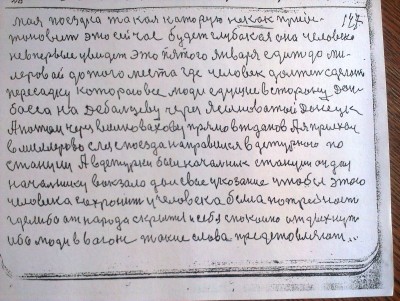 127
мая поездка такая которую некак приос-
тановлят это сей час будет глубокая она человеко
невперые увидет это пятого января едит до ми-
лерова й до того места где человек должен сделать
пересадку которого все люди едущие в сторону Дон-
басса на Дебалцеву через Ясиноватой Донецка
А потом через Волноваху прямо в Жданов А я приехал
в Миллерово слез с поезда направился в дежурного по
станции А в дежурки был началник станции он дал
началнику вокзало долевые указание чтобы этого
человека сохронит у человека была потребност
где либо от народа скрытся и себя спокоино отдыхнут
ибо люди в вагоне такие слова предстовляют...